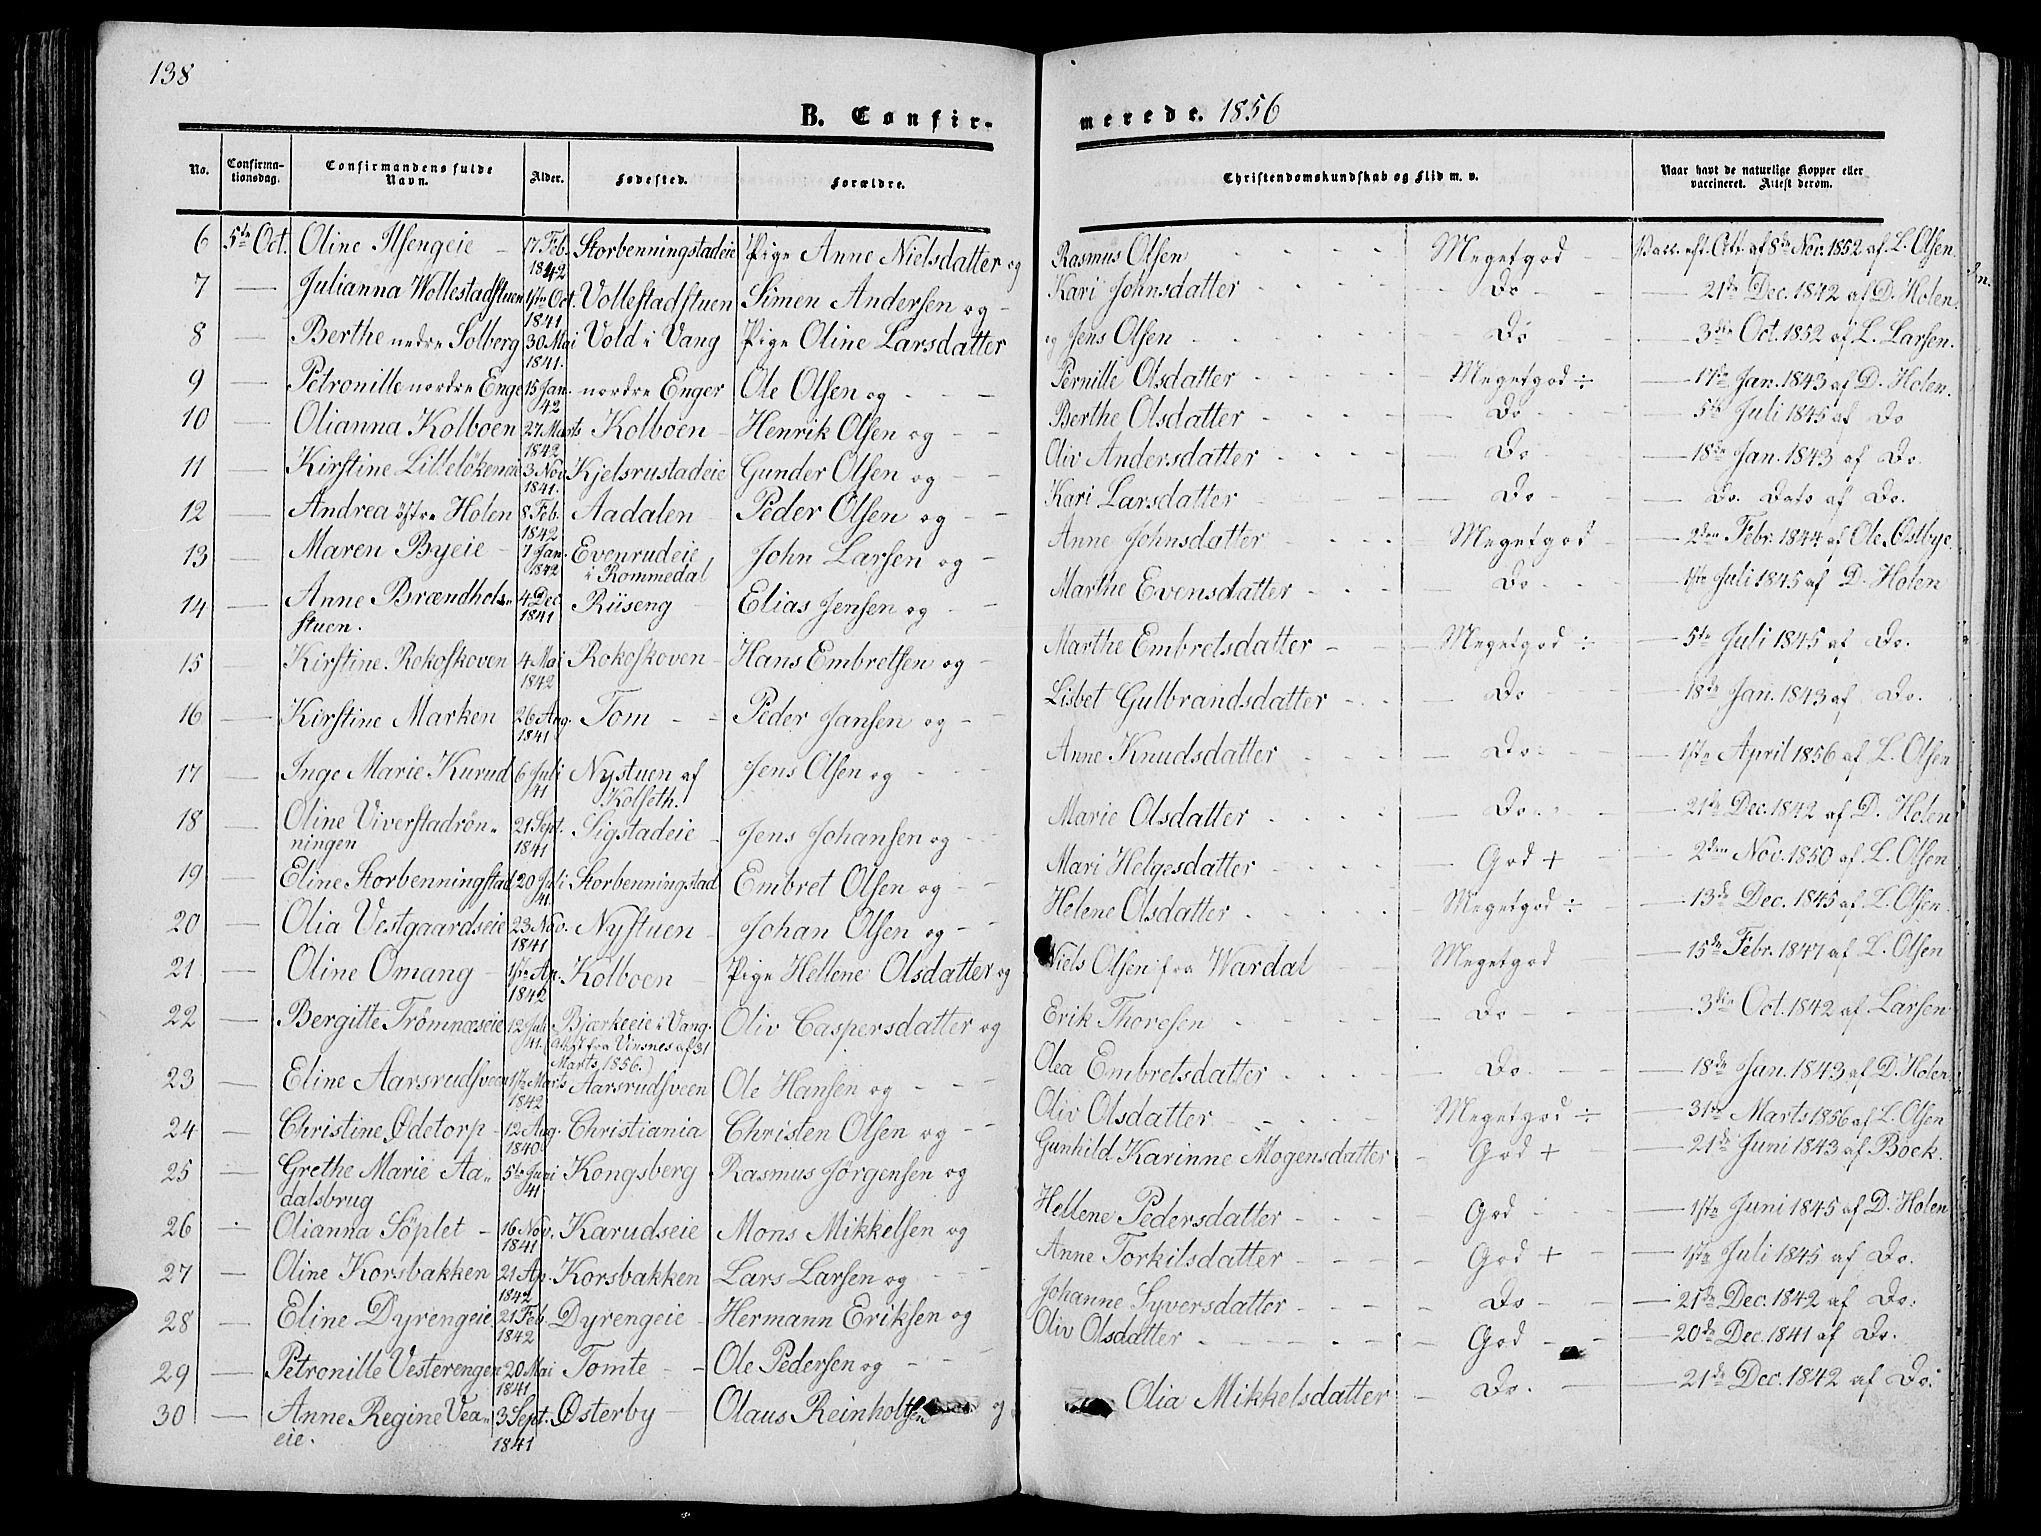 138
B. Confir-
merede. 1856
No. Confirma-tionsdag. Confirmandens fulde Navn. Alder. Fødested. Forældre. Christendomskundskab og Flid m. v. Naar havt de naturlige Kopper eller vaccineret. Attest derom.
6 5te Oct. Oline Ilsengeie - 17 Feb. 1842 Storbenningstadeie Pige Anne Nielsdatter og Rasmus Olsen - - - Megetgod - Vacc. eft. Att. af 8de Nov. 1852 af L. Olsen.
7 — Julianna Wollestadstuen 1ste Oct. 1841 Vollestadstuen Simen Andersen og - Kari Johnsdatter - - - Do - - — 21de Dec. 1842 af D. Holen.
8 — Berthe nedre Solberg 30 Mai 1841. Vold i Vang Pige Oline Larsdatter og Jens Olsen - - - Do - - — 3die Oct. 1852 af L. Larsen.
9 — Petronille nordre Enge 15 Jan. 42 nordre Enger Ole Olsen og - - - Pernille Olsdatter - - - Megetgod ÷ — 17de Jan. 1843 af D. Holen.
10 — Olianna Kolboen 27 Marts 1842 Kolboen - Henrik Olsen og - - Berthe Olsdatter - - - Do - - — 5te Juli 1845 af Do
11 — Kirstine Lilleløkeneie 3 Nov. 1841. Kjelsrustadeie Gunder Olsen og - - Oliv Andersdatter - - - Do - - — 18de Jan. 1843 af Do.
12 — Andrea østre Holen 8 Feb. 1842 Aadalen - Peder Olsen og - - Kari Larsdatter - - - Do - — Do. Dato af Do.
13 — Maren Byeie - 7 Jan. 1842 Evenrudeie i Rommedal John Larsen og - Anne Johnsdatter - - - Megetgod - — 2den Febr. 1844 af Ole Østbye.
14 — Anne Brændhols-stuen. 4 Dec. 1841 Riiseng - Elias Jensen og - - Marthe Evensdatter - - - Do - - — 1ste Juli 1845 af D. Holen
15 — Kirstine Rokoskoven 4 Mai 1842 Rokoskoven - Hans Embretsen og - Marthe Embretsdatter - - Megetgod ÷ — 5te Juli 1845 af Do.
16 — Kirstine Marken 26 Aug. 1841 Tom - - Peder Jansen og - - Lisbet Gulbrandsdatter - - - Do - - — 18de Jan. 1843 af Do.
17 — Inge Marie Kurud 6 Juli 41 Nystuen af Kolseth. Jens Olsen og - - - Anne Knudsdatter - - - Do - - — 1ste April 1856 af L. Olsen
18 — Oline Viverstadrön-ningen 21 Sept. 1841 Sigstadeie - Jens Johansen og - - Marie Olsdatter - - - Do - - — 21de Dec. 1842 af D. Holen
19 — Eline Storbenningstad 20 Juli 41. Storbenningstad Embret Olsen og - - Mari Helgesdatter - - - God + - — 2den Nov. 1850 af L. Olsen
20 — Olia Vestgaardseie 23 Nov. 1841 Nystuen - Johan Olsen og - - Helene Olsdatter - - - Megetgod ÷ — 13de Dec. 1845 af L. Olsen.
21 — Oline Omang - 1ste Ap. 1842 Kolboen - Pige Hellene Olsdatter og Niels Olsen fra Wardal - Megetgod - — 15de Febr. 1847 af L. Olsen
22 — Bergitte Trömnæseie 12 Juli 41. Bjærkeeie i Vang. (Att. fra Vinsnes af 31 Marts 1856.) Oliv Caspersdatter og Erik Thoresen - - - Do - - — 3die Oct. 1842 af Larsen
23 — Eline Aarsrudsveen 1ste Marts 1842 Aarsrudsveen Ole Hansen og - - - Olea Embretsdatter - - - Do. - - — 18de Jan. 1843 af D. Holen.
24 — Christine Ødetorp - 12 Aug. 1840 Christiania Christen Olsen og - - Oliv Olsdatter - - - Megetgod ÷ — 31te Marts 1856 af L. Olsen
25 — Grethe Marie Aa-dalsbrug 5te Juni 41 Kongsberg Rasmus Jørgensen og Gunhild Karinne Mogensdatter - God + - — 21de Juni 1843 af Bock.
26 - Olianna Söplet - 16 Nov. 1841 Karudseie Mons Mikkelsen og Hellene Pedersdatter - - - God - - — 1ste Juni 1845 af D. Holen
27 — Oline Korsbakken 21 Ap. 1842 Korsbakken Lars Larsen og - - Anne Torkilsdatter - - - God + - — 1ste Juli 1845 af Do.
28 — Eline Dyrengeie 21 Feb. 1842 Dyrengeie - Hermann Eriksen og Johanne Syversdatter - - - Do - - — 21de Dec. 1842 af Do.
29 — Petronille Vesterengen 20 Mai 1841 Tomte - - Ole Pedersen og - - - Oliv Olsdatter - - - God - - — 20de Dec. 1841 af Do.
30 — Anne Regine Vea-eie. 3 Sept. 1841 Østerby - Olaus Reinholtsen og Olia Mikkelsdatter - Do. - — 21de Dec. 1842 af Do.